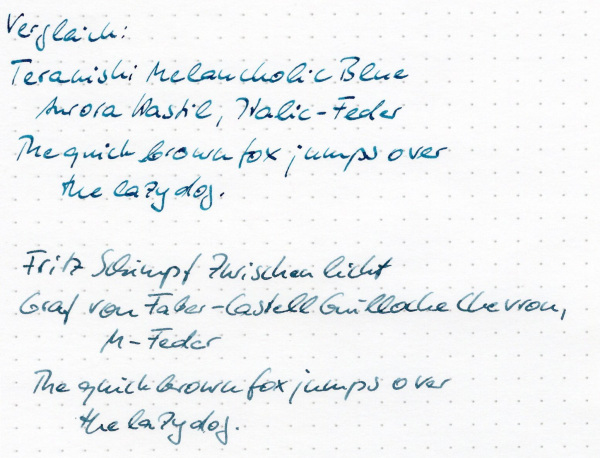 Vergleich:
Teranishi Melancholic Blue
Aurora Hastil, Italic-Feder
The quick brown fox jumps over
the lazy dog.
Fritz Schimpf Zwischenlicht
Graf von Faber-Castell Guilloche Chevron,
M-Feder
The quick brown fox jumps over
the lazy dog.